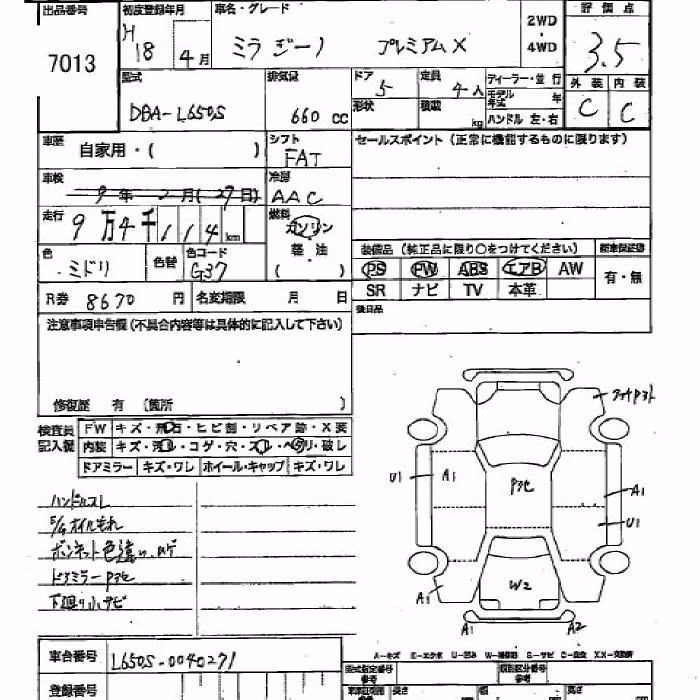 出品番号 初度登録年月 車名・グレード 評価点
7013 H18年 4月 ミラジーノ プレミアムX 2WD・4WD 3.5
外装 内装
C C
型式 排気量 ドア 定員 ディーラー・並行
DBA-L650S 660 CC 5 4人 モデル年式 年
形状 積載 kg ハンドル 左・右
車歴 自家用・( ) シフト FAT セールスポイント (正常に機能するものに限ります)
車検 9年2月(27日) 冷房 AAC
走行 9万4千114km 燃料 ガソリン・軽・油 ( )
色 ミドリ 色替 色コード G37
装備品 (純正品に限り○をつけてください) 新車保証書
PS PW ABS エアB AW 有・無
SR ナビ TV 本革
R券 8670円 名変期限 月 日 後日品
注意事項申告欄 (不具合内容等は具体的に記入して下さい)
修復歴 有 (箇所 )
検査員記入欄 FW キズ・飛石・ヒビ割・リペア跡・X要
内装 キズ・汚れ・コゲ・穴・スレ・ヘタリ・破レ
ドアミラー キズ・ワレ ホイール・キャップ キズ・ワレ
ハンドルスレ
E/Gオイルもれ
ボンネット色違い
ドアミラーPヌケ
下廻り小サビ
U1 A1 Pヌケ A1 U1
W2
A1 A1 A2
A-キズ E-エクボ U-凹み W-補修跡 S-サビ C-腐食 XX-交換済
車台番号 L650S-0040271 型式指定番号 参考 類別区分番号 参考
登録番号 長さ 幅 高さ